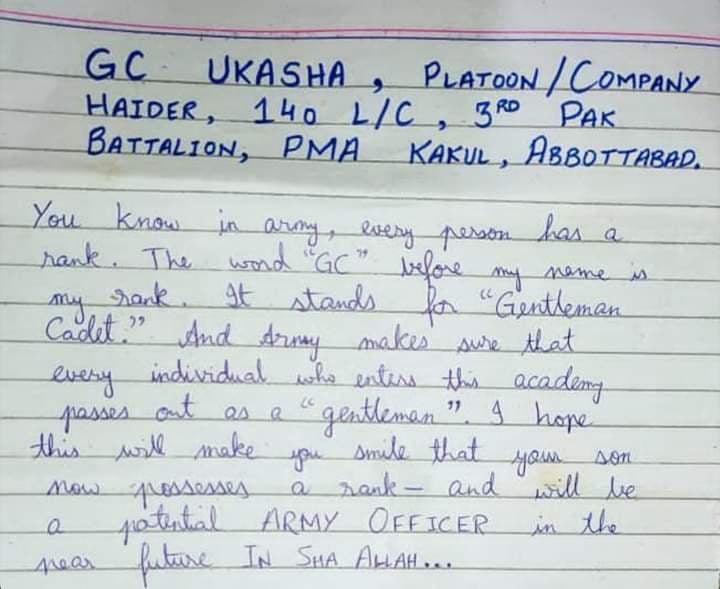 GC UKASHA, PLATOON/COMPANY
HAIDER, 140 L/C, 3RD PAK
BATTALION, PMA KAKUL, ABBOTTABAD.
You know in army, every person has a
rank. The word "GC" before my name is
my rank. It stands for "Gentleman
Cadet." And Army makes sure that
every individual who enters this academy
passes out as a "gentleman". I hope
this will make you smile that your son
now possesses a rank — and will be
a potential ARMY OFFICER in the
near future IN SHA ALLAH...